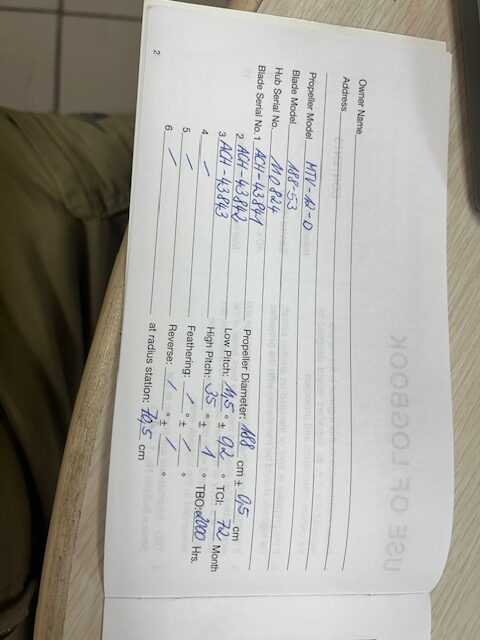 Owner Name
Address
Propeller Model MTV-12-D
Blade Model 188-53
Hub Serial No. 110824
Blade Serial No. 1 ACH-43841
2 ACH-43842
3 ACH-43843
4 /
5 /
6 /
Propeller Diameter: 188 cm ± 0,5 cm
Low Pitch: 11,5 ° ± 0,2 ° TCI: 72 Month
High Pitch: 35 ° ± 1 ° TBO: 2000 Hrs.
Feathering: / ° ± / °
Reverse: / ° ± / °
at radius station: 70,5 cm
2
USE OF LOGBOOK